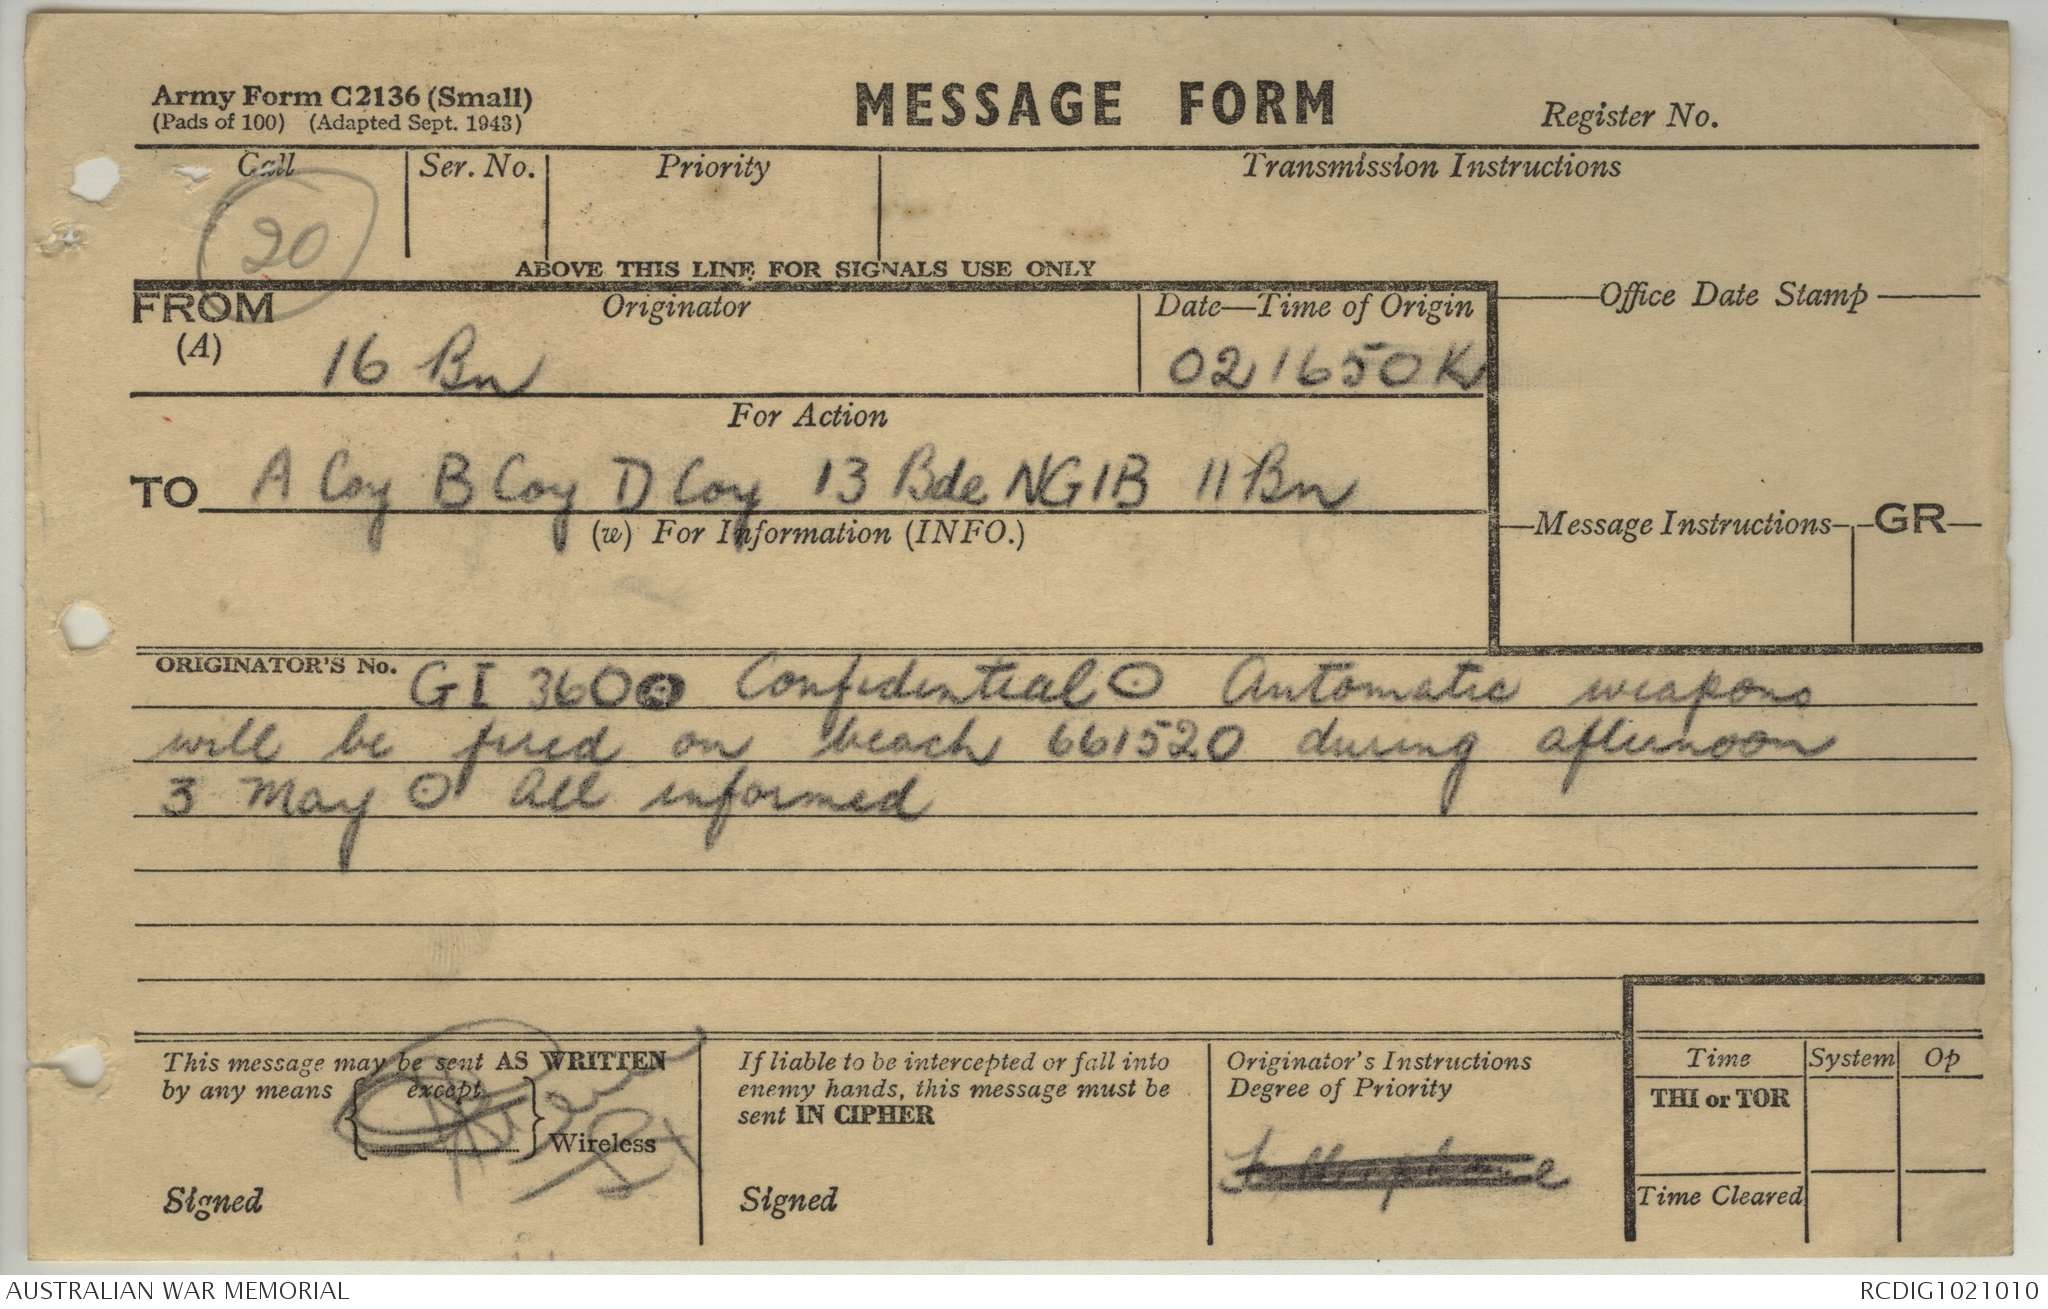 Army Form C2136 (Small)
(Pads of 100) (Adapted Sept. 1943)
MESSAGE FORM
Register No.
Call
Ser. No.
Priority
Transmission Instructions
20
ABOVE THIS LINE FOR SIGNALS USE ONLY
FROM
(A)
Originator
16 Bn
Date—Time of Origin
021650K
Office Date Stamp
For Action
TO A Coy B Coy D Coy 13 Bde NGIB 11 Bn
(w) For Information (INFO.)
Message Instructions
GR
ORIGINATOR'S No. GI 360 Confidential Automatic weapons
will be fired on beach 661520 during afternoon
3 May All informed
This message may be sent AS WRITTEN
by any means except
Wireless
Signed
If liable to be intercepted or fall into
enemy hands, this message must be
sent IN CIPHER
Signed
Originator's Instructions
Degree of Priority
Time
System
Op
THI or TOR
Time Cleared
AUSTRALIAN WAR MEMORIAL
RCDIG1021010